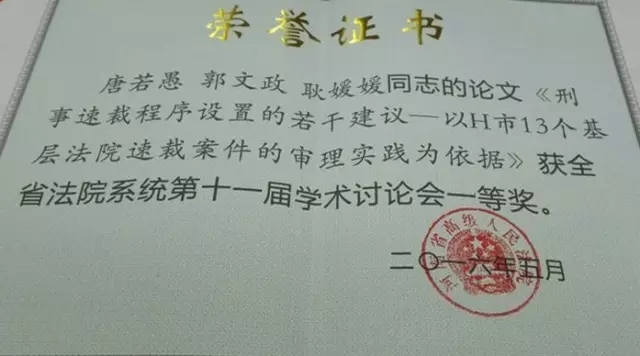 荣誉证书
唐若愚 郭文政 耿媛媛同志的论文《刑
事速裁程序设置的若干建议—以H市13个基
层法院速裁案件的审理实践为依据》获全
省法院系统第十一届学术讨论会一等奖。
二〇一六年五月
省高级人民法院